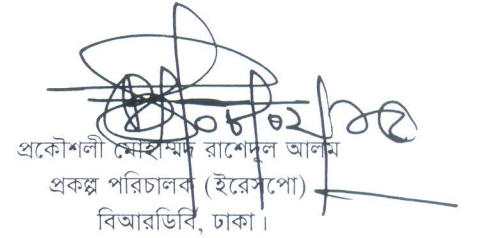 ০৮/০২/২৫
প্রকৌশলী মোহাম্মদ রাশেদুল আলম
প্রকল্প পরিচালক (ইরেসপো)
বিআরডিবি, ঢাকা।